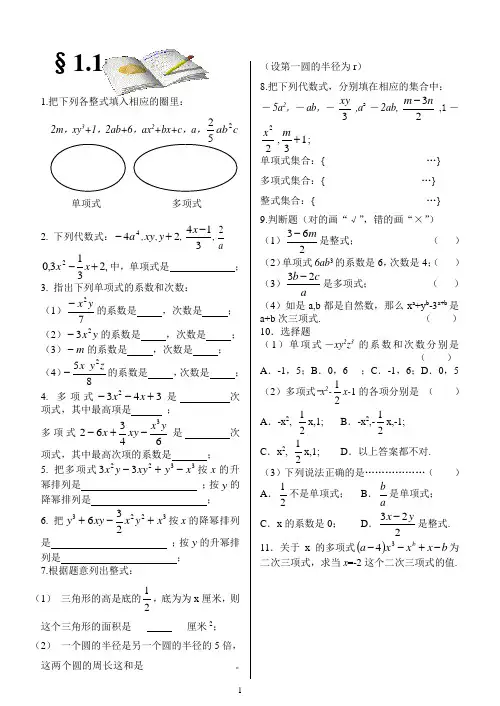 §1.1
1.把下列各整式填入相应的圈里:
2m, xy³+1, 2ab+6, ax²+bx+c, a, $\frac{2}{5}ab^2c$
单项式 多项式
2. 下列代数式: $-4a^4, xy, y+2, \frac{4x-1}{3}, \frac{2}{a}$
$0,3, \frac{1}{3}x^2-x+2,$ 中，单项式是 ；
3. 指出下列单项式的系数和次数:
（1）$\frac{-x^2y}{7}$的系数是 ，次数是 ；
（2）$-3x^2y$的系数是 ，次数是 ；
（3）$-m$的系数是 ，次数是 ；
（4）$-\frac{5x\ y^2z}{8}$的系数是 ,次数是 ；
4. 多项式$-3x^2-4x+3$是 次
项式，其中最高项是 ；
多项式$2-6x+\frac{3}{4}xy-\frac{x^3y}{6}$是 次
项式，其中最高次项的系数是 ；
5. 把多项式$3x^2y-3xy^2+y^3-x^3$按x的升
幂排列是 ；按y的
降幂排列是 ；
6. 把$y^3+6xy-\frac{3}{2}x^2y^2+x^3$按x的降幂排列
是 ；按y的升幂排
列是 ；
7.根据题意列出整式:
（1） 三角形的高是底的$\frac{1}{2}$，底为为x厘米，则
这个三角形的面积是 厘米²；
（2） 一个圆的半径是另一个圆的半径的5倍，
这两个圆的周长这和是 。
（设第一圆的半径为r）
8.把下列代数式，分别填在相应的集合中:
-5a², -ab, $-\frac{xy}{3}$,a² -2ab, $\frac{m-3n}{2}$ ,1-
$\frac{x^2}{2}, \frac{m}{3}+1;$
单项式集合:{ …}
多项式集合:{ …}
整式集合:{ …}
9.判断题(对的画“√”，错的画“×”)
（1）$\frac{3-6m}{2}$是整式; （ ）
（2）单项式6ab³的系数是6,次数是4;（ ）
（3）$\frac{3b-2c}{a}$是多项式; （ ）
（4）如是a,b都是自然数，那么xᵃ+yᵇ-3ᵃ⁺ᵇ是
a+b次三项式. （ ）
10．选择题
（1）单项式-xy²z³的系数和次数分别是
（ ）
A．-1，5；B．0，6 ；C．-1，6；D．0，5
（2）多项式-x²-$\frac{1}{2}$x-1的各项分别是 （ ）
A．-x², $\frac{1}{2}$x,1; B．-x²,-$\frac{1}{2}$x,-1;
C．x², $\frac{1}{2}$x,1; D．以上答案都不对.
（3）下列说法正确的是………………（ ）
A．$\frac{1}{2}$不是单项式; B．$\frac{b}{a}$是单项式;
C．x的系数是0; D．$\frac{3x-2y}{2}$是整式.
11．关于x的多项式$(a-4)x^3-x^b+x-b$为
二次三项式，求当x=-2这个二次三项式的值.
1